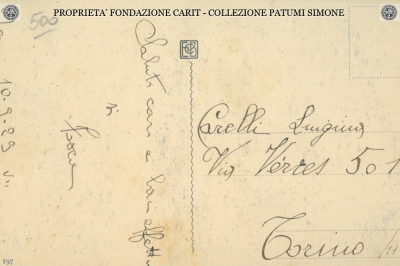 PROPRIETA' FONDAZIONE CARIT - COLLEZIONE PATUMI SIMONE
500
Saluti cari e
di
10-9-29
Carelli Luigina
Via Vérres 501
Torino
197